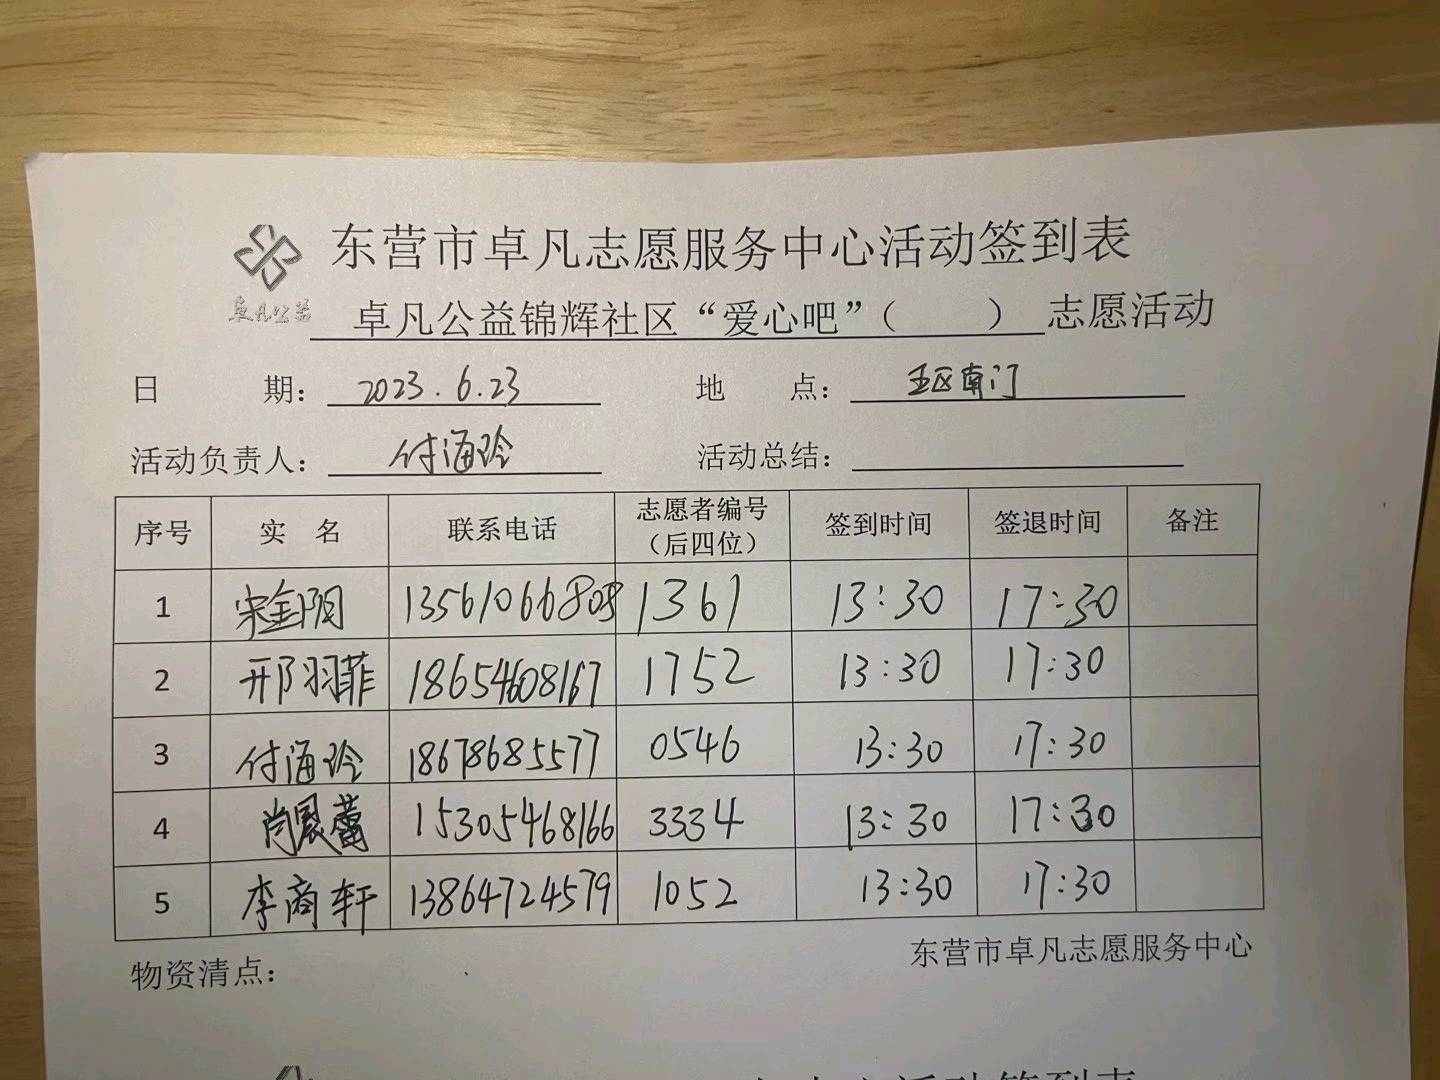 东营市卓凡志愿服务中心活动签到表
卓凡公益
卓凡公益锦辉社区“爱心吧”（ ）志愿活动
日 期： 2023.6.23 地 点： 五区南门
活动负责人： 付海玲 活动总结：
序号 实 名 联系电话 志愿者编号（后四位） 签到时间 签退时间 备注
1 宋金阳 13561066808 1361 13:30 17:30
2 邢羽菲 18654608167 1752 13:30 17:30
3 付海玲 18678685577 0546 13:30 17:30
4 蕾 15305468166 3334 13:30 17:30
5 李商轩 13864724579 1052 13:30 17:30
东营市卓凡志愿服务中心
物资清点：